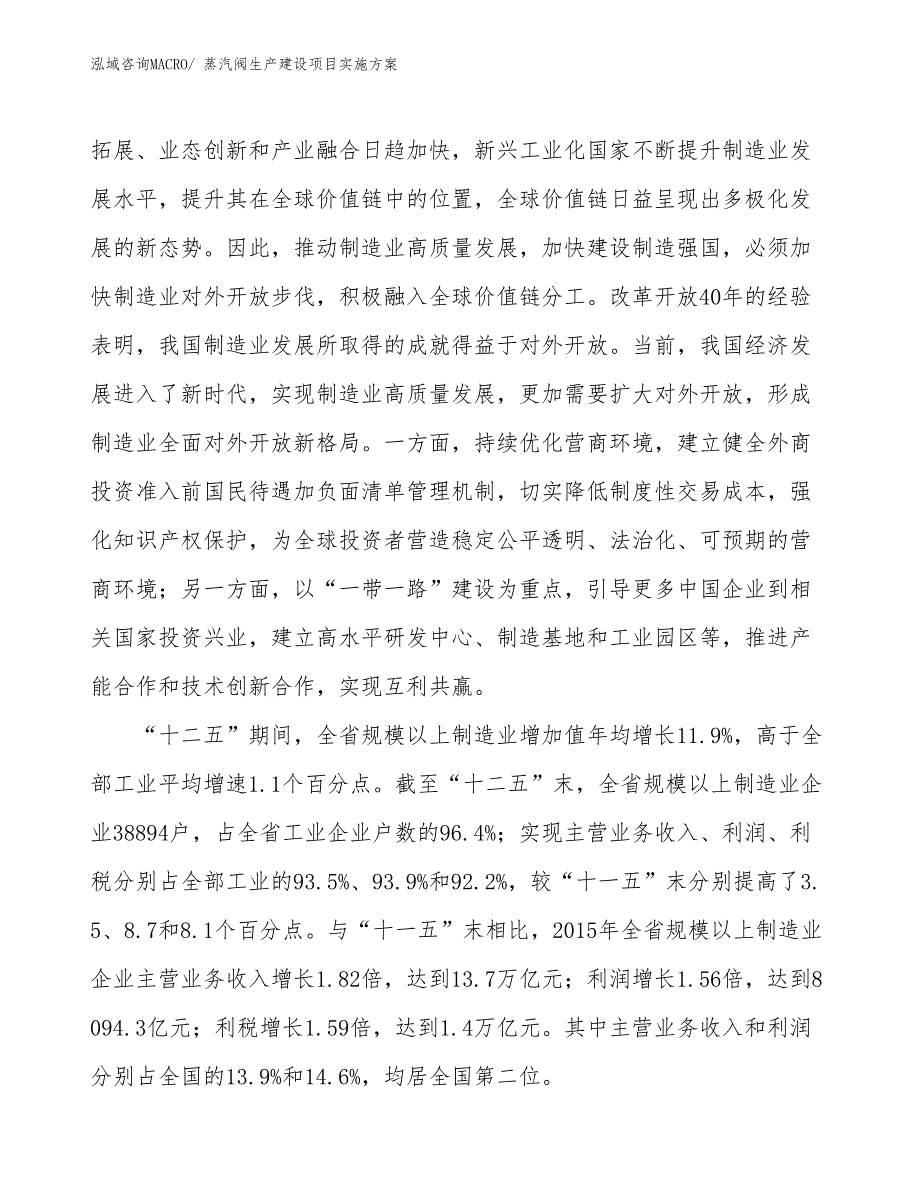 泓域咨询MACRO/ 蒸汽阀生产建设项目实施方案
拓展、业态创新和产业融合日趋加快，新兴工业化国家不断提升制造业发
展水平，提升其在全球价值链中的位置，全球价值链日益呈现出多极化发
展的新态势。因此，推动制造业高质量发展，加快建设制造强国，必须加
快制造业对外开放步伐，积极融入全球价值链分工。改革开放40年的经验
表明，我国制造业发展所取得的成就得益于对外开放。当前，我国经济发
展进入了新时代，实现制造业高质量发展，更加需要扩大对外开放，形成
制造业全面对外开放新格局。一方面，持续优化营商环境，建立健全外商
投资准入前国民待遇加负面清单管理机制，切实降低制度性交易成本，强
化知识产权保护，为全球投资者营造稳定公平透明、法治化、可预期的营
商环境；另一方面，以“一带一路”建设为重点，引导更多中国企业到相
关国家投资兴业，建立高水平研发中心、制造基地和工业园区等，推进产
能合作和技术创新合作，实现互利共赢。
“十二五”期间，全省规模以上制造业增加值年均增长11.9%，高于全
部工业平均增速1.1个百分点。截至“十二五”末，全省规模以上制造业企
业38894户，占全省工业企业户数的96.4%；实现主营业务收入、利润、利
税分别占全部工业的93.5%、93.9%和92.2%，较“十一五”末分别提高了3.
5、8.7和8.1个百分点。与“十一五”末相比，2015年全省规模以上制造业
企业主营业务收入增长1.82倍，达到13.7万亿元；利润增长1.56倍，达到8
094.3亿元；利税增长1.59倍，达到1.4万亿元。其中主营业务收入和利润
分别占全国的13.9%和14.6%，均居全国第二位。